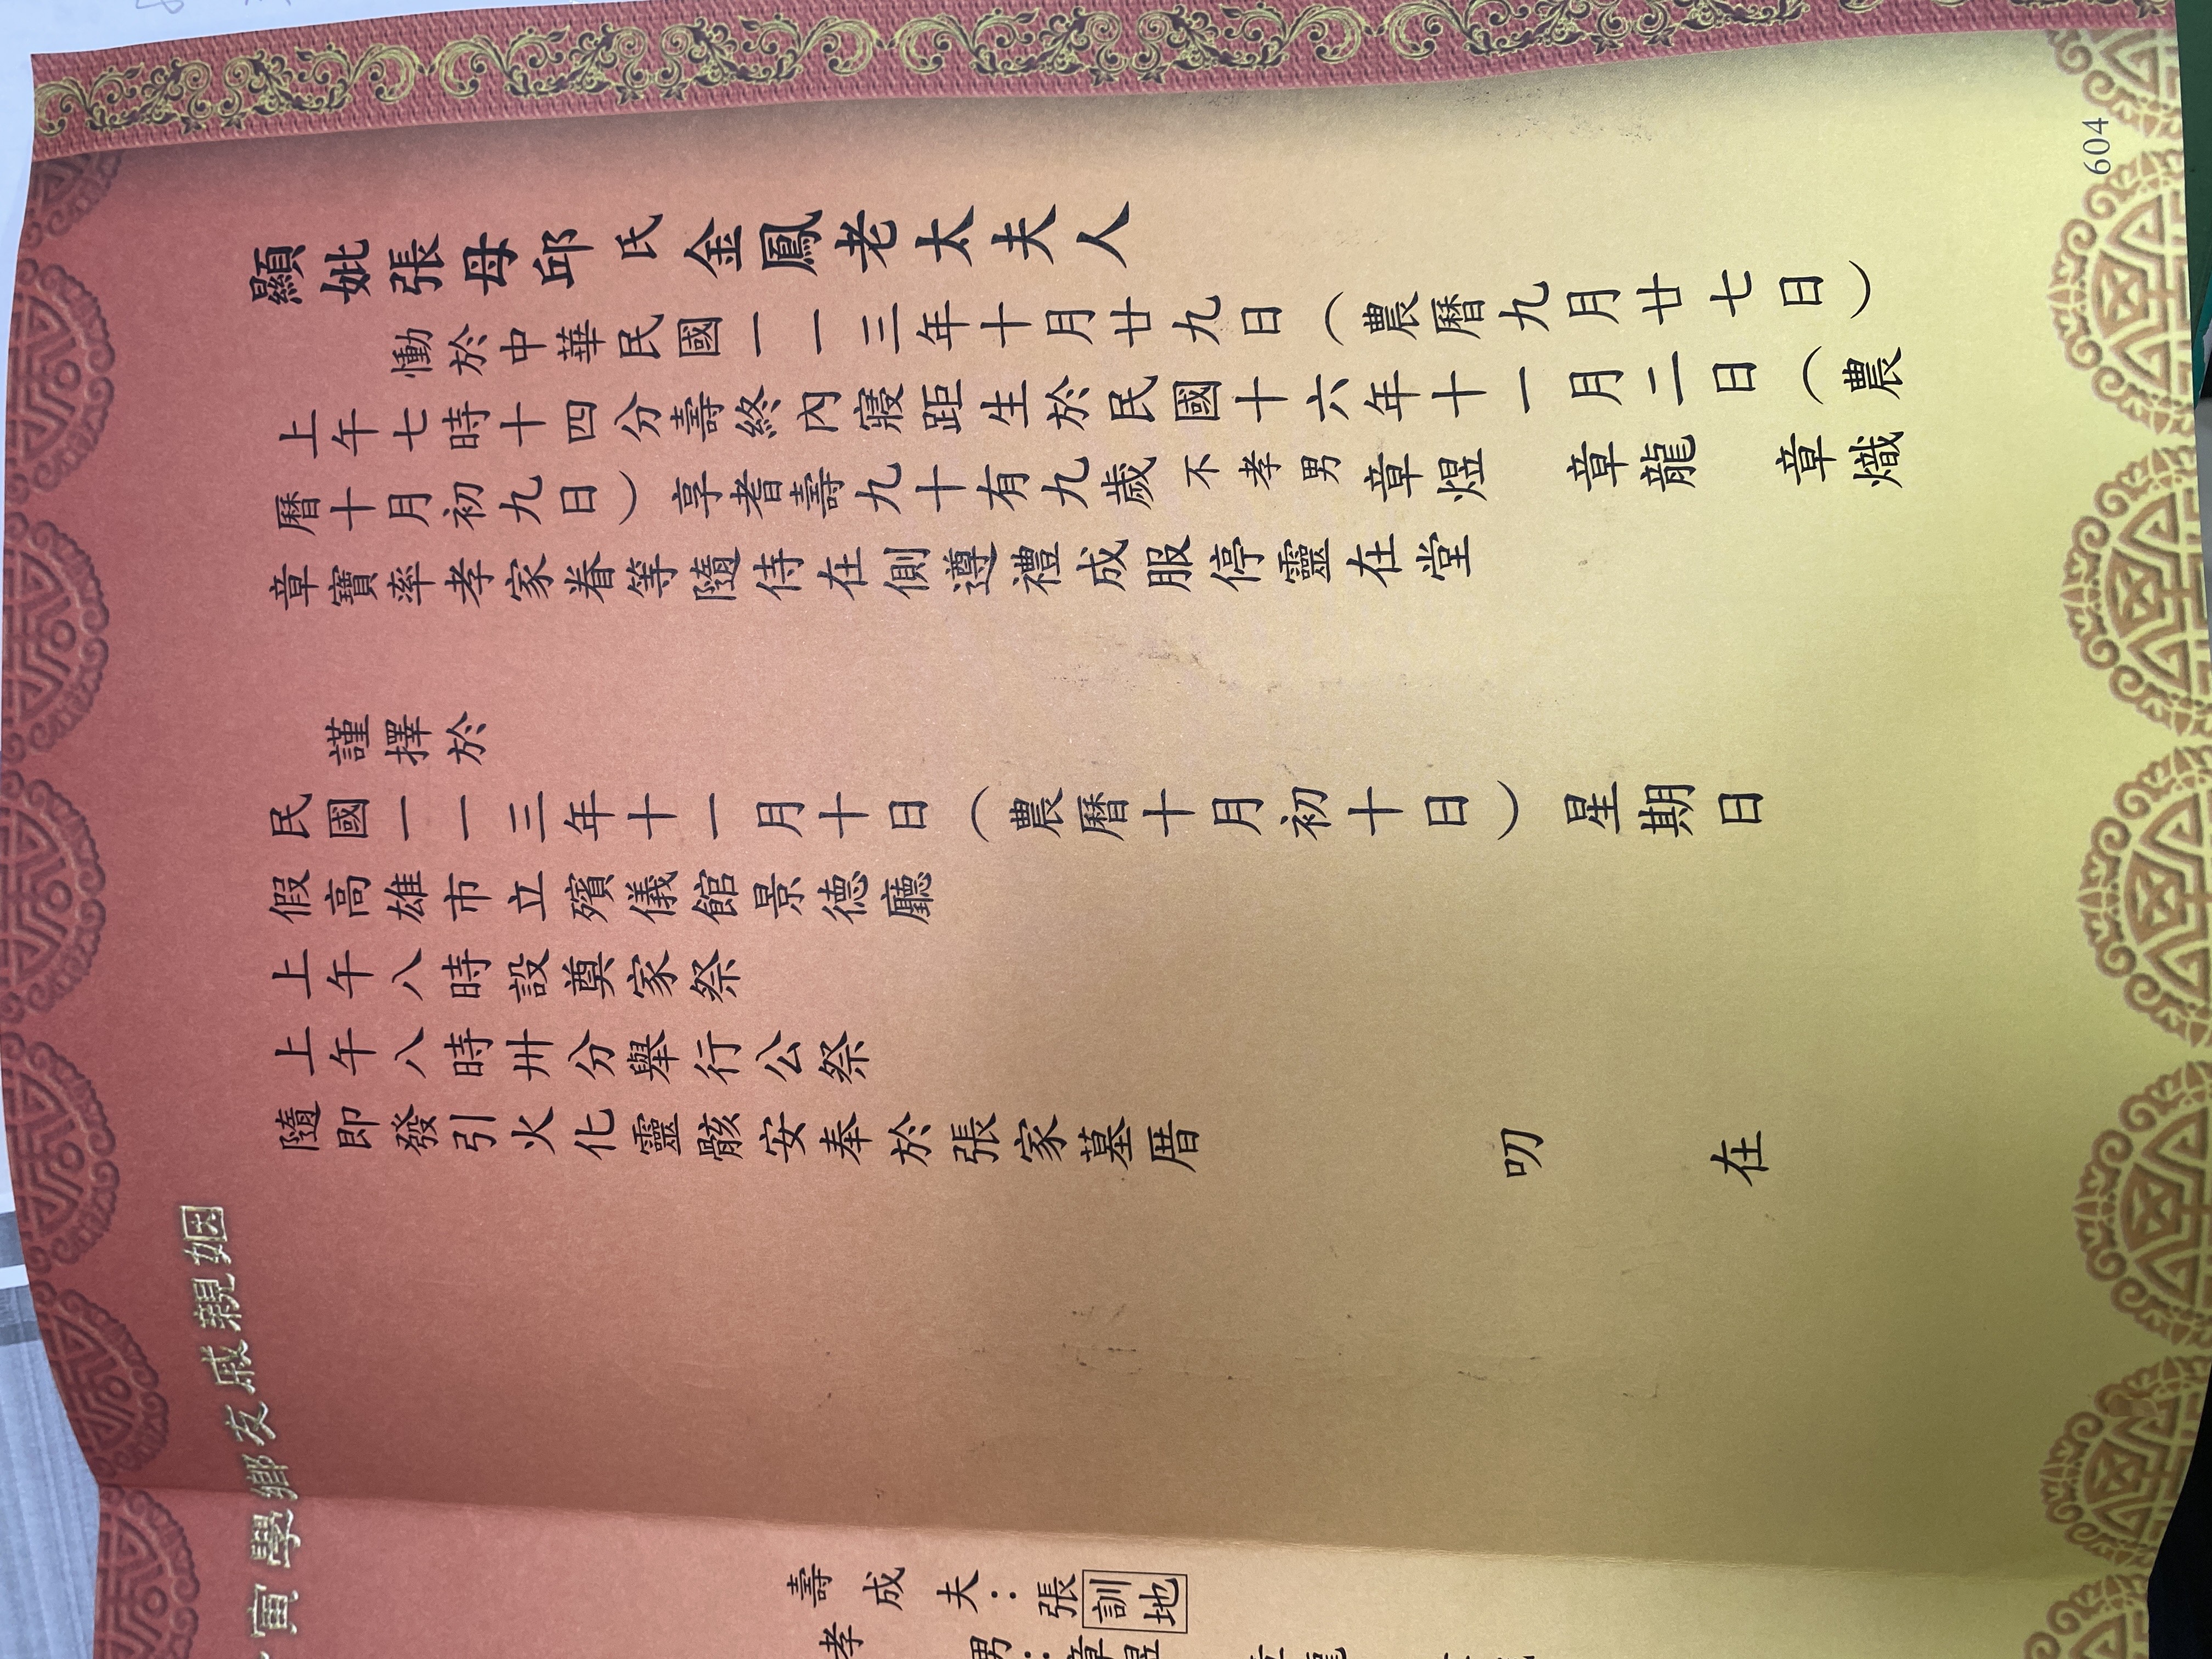 顯妣張母邱氏金鳳老太夫人
慟於中華民國一一三年十月廿九日（農曆九月廿七日）
上午七時十四分壽終內寢距生於民國十六年十一月二日（農
曆十月初九日）享耆壽九十有九歲不孝男章煜 章龍 章熾
章寶率孝家眷等隨侍在側遵禮成服停靈在堂
謹擇於
民國一一三年十一月十日（農曆十月初十日）星期日
假高雄市立殯儀館景德廳
上午八時設奠家祭
上午八時卅分舉行公祭
隨即發引火化靈骸安奉於張家墓厝
叨 在
寅學鄉友戚親姻
壽成夫：張訓地
孝 男：章煜
604